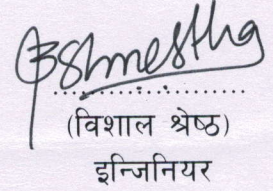 BShrestha
(विशाल श्रेष्ठ)
इन्जिनियर